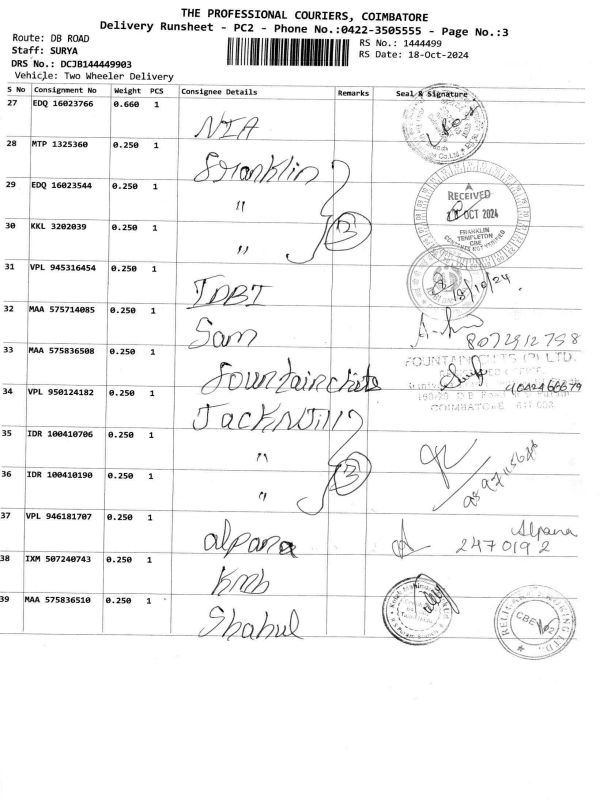 THE PROFESSIONAL COURIERS, COIMBATORE
Delivery Runsheet - PC2 - Phone No.:0422-3505555 - Page No.:3
Route: DB ROAD
RS No.: 1444499
Staff: SURYA
RS Date: 18-Oct-2024
DRS No.: DCJB144449903
Vehicle: Two Wheeler Delivery
S No Consignment No Weight PCS Consignee Details Remarks Seal & Signature
27 EDQ 16023766 0.660 1 NIA
28 MTP 1325360 0.250 1 Franklin
29 EDQ 16023544 0.250 1 "
RECEIVED
OCT 2024
FRANKLIN
TEMPLETON
CBE
CONTENTS NOT VERIFIED
30 KKL 3202039 0.250 1 " 3
31 VPL 945316454 0.250 1 IDBI
18/10/24
32 MAA 575714085 0.250 1 Sam
8072912758
33 MAA 575836508 0.250 1 Fountainchits
FOUNTAIN CHITS (P) LTD.
COIMBATORE
34 VPL 950124182 0.250 1 JackNJill
35 IDR 100410706 0.250 1 "
36 IDR 100410190 0.250 1 " 3
37 VPL 946181707 0.250 1 alpana
Alpana
2470192
38 IXM 507240743 0.250 1 Kmb
39 MAA 575836510 0.250 1 Shahul
CBE